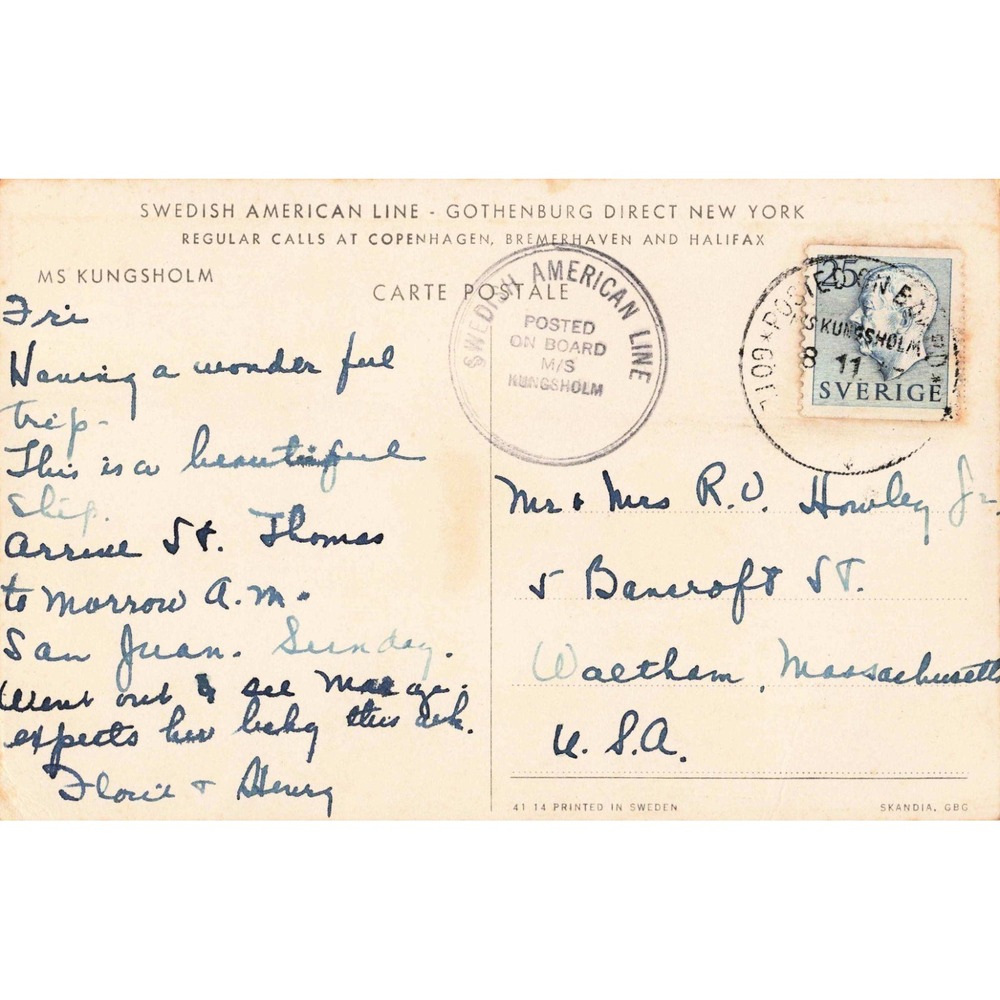 SWEDISH AMERICAN LINE - GOTHENBURG DIRECT NEW YORK
REGULAR CALLS AT COPENHAGEN, BREMERHAVEN AND HALIFAX
MS KUNGSHOLM
CARTE POSTALE
SWEDISH AMERICAN LINE
POSTED
ON BOARD
M/S
KUNGSHOLM
25
POSTED ON BOARD
MS KUNGSHOLM
8 11
SVERIGE
Fri
Having a wonder ful
trip-
This is a beautiful
ship.
Arrive St. Thomas
to Morrow A.M.
San Juan. Sunday.
Went out & see
expects her this
Florie + Henry
Mr & Mrs R.O. Howley Jr
5 Bancroft ST.
Waltham, Massachusetts
U.S.A.
41 14 PRINTED IN SWEDEN
SKANDIA, GBG